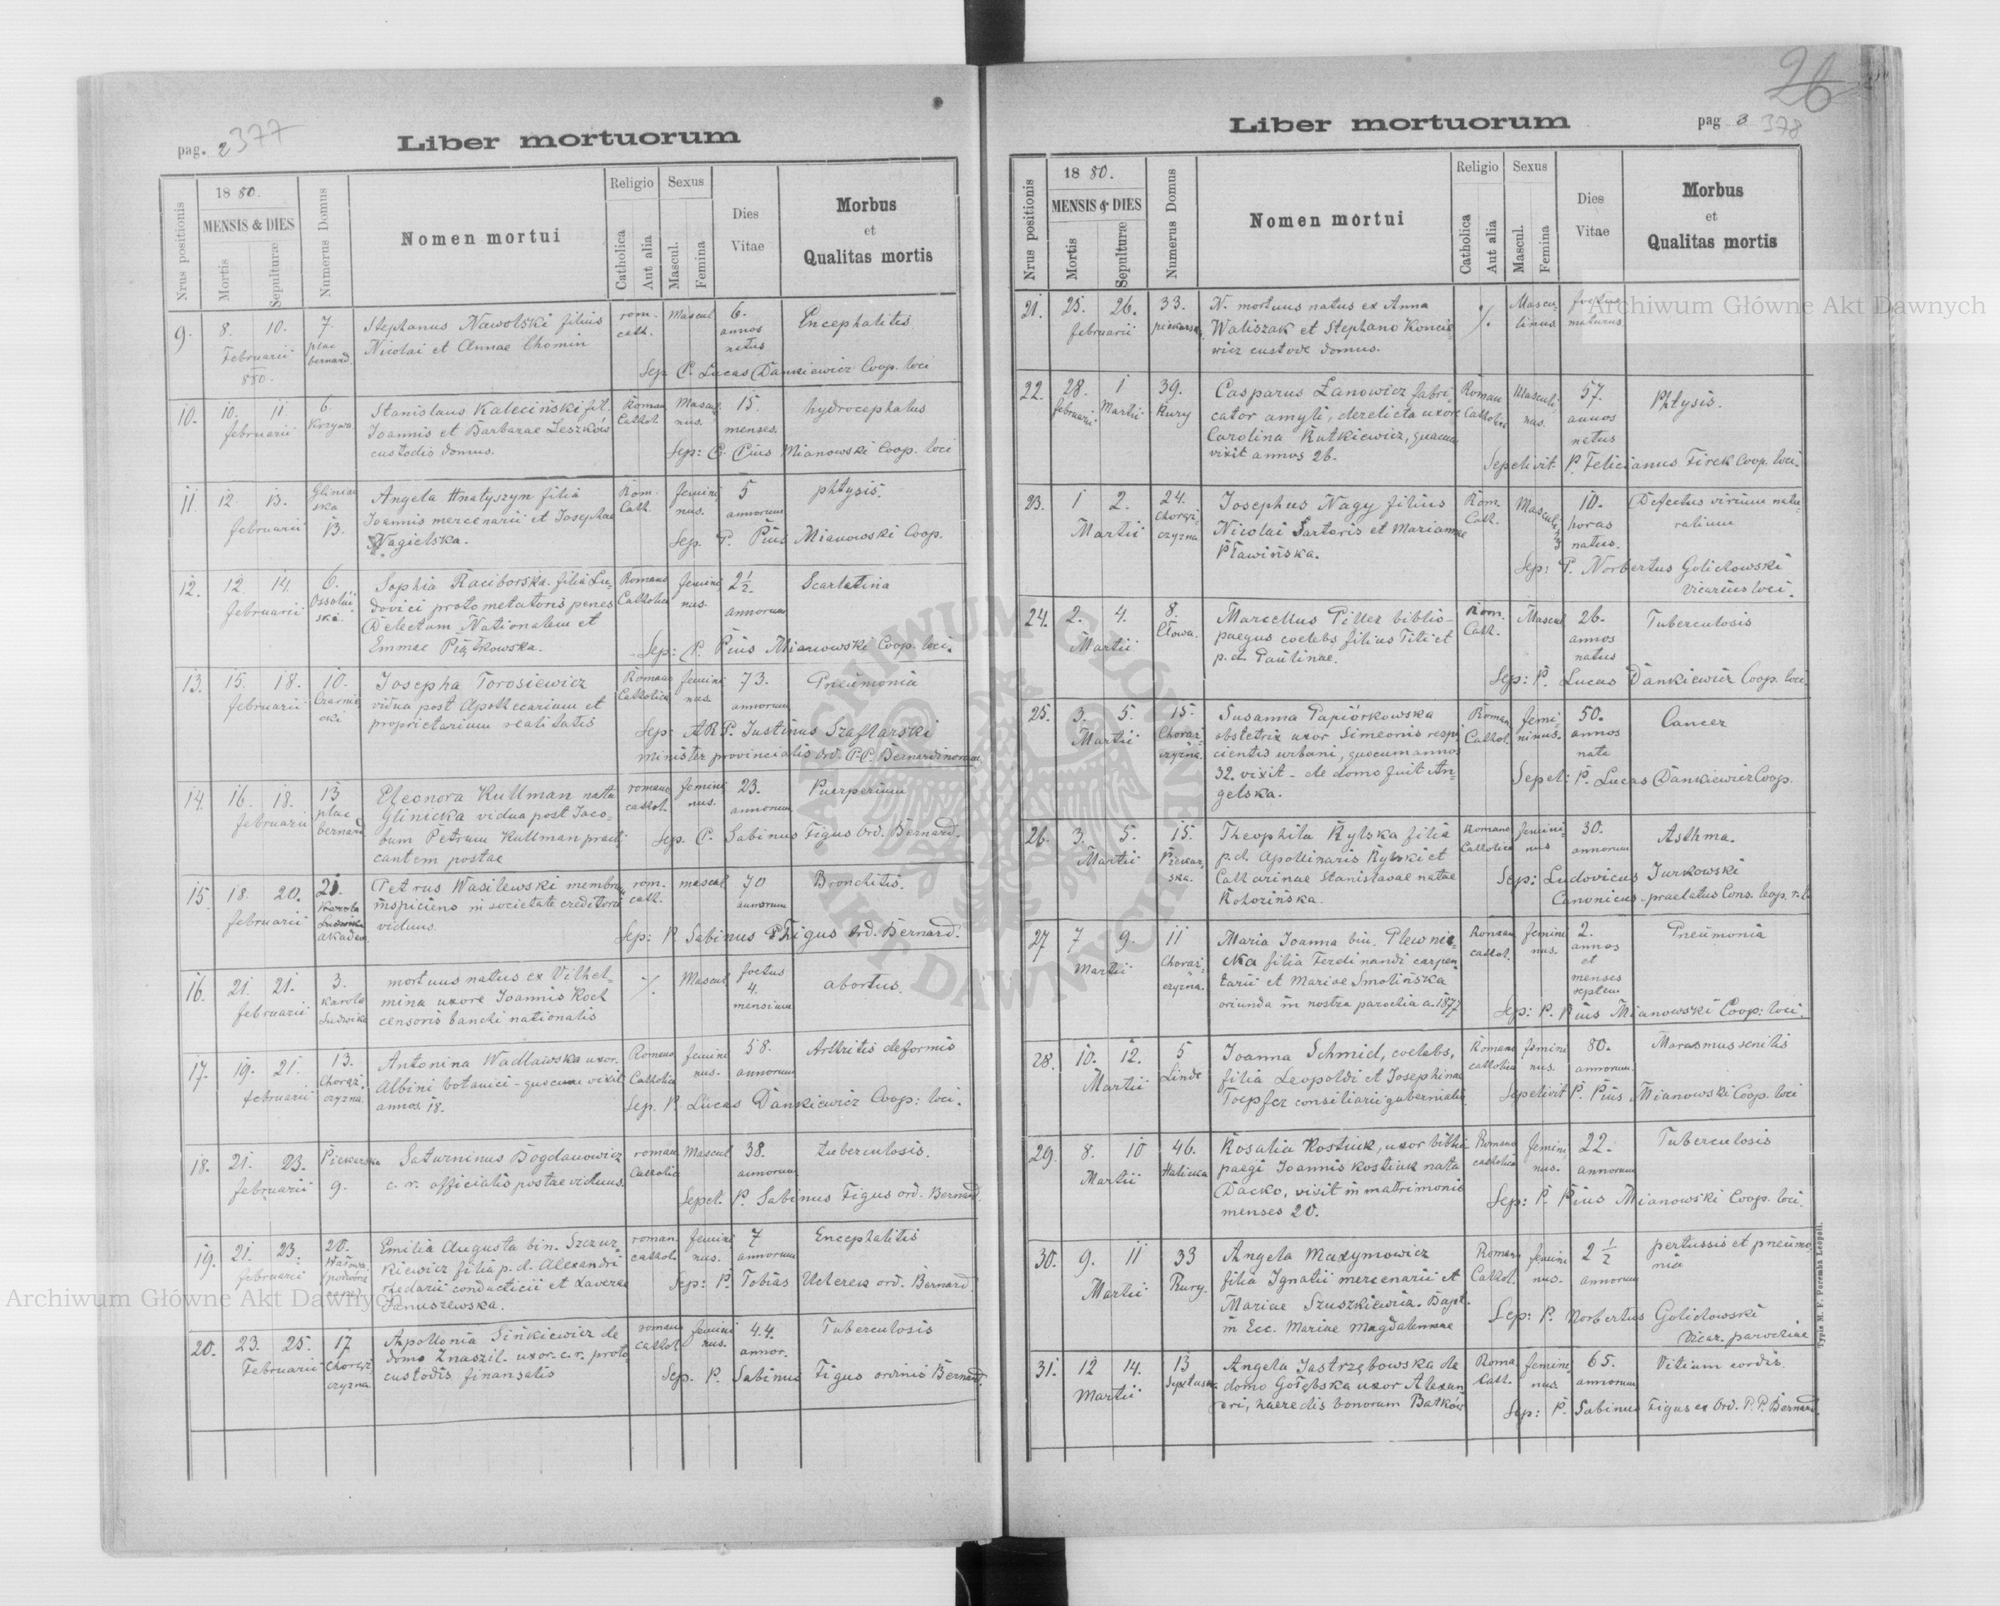 pag. 2 377
Liber mortuorum
Nrus positionis
18 80.
MENSIS & DIES
Mortis
Sepulturæ
Numerus Domus
Nomen mortui
Religio
Catholica
Aut alia
Sexus
Mascul.
Femina
Dies
Vitae
Morbus
et
Qualitas mortis
9. 8. 10. 7. Stephanus Nawolski filius rom. Mascul 6. Encephalitis
Februarii plac Nicolai et Annae Chomin cath. annos
880. bernard. natus
Sep. P. Lucas Dankiewicz Coop. loci
10. 10. 11. 6. Stanislaus Kaleciński fil. Roman. Mascul 15. hydrocephalus
februarii Krzywa. Joannis et Barbarae Leszków Cathol. nus. menses.
custodis domus. Sep: P. Pius Mianowski Coop. loci
11. 12. 13. Glinian Angela Hnatyszyn filia Rom. femini 5 phtysis.
ska Joannis mercenarii et Josephae Cath. nus. annorum
februarii 13. Nagielska. Sep. P. Pius Mianowski Coop.
12. 12. 14. 6. Sophia Raciborska filia Lu- Romano femini 2 1/2 Scarlatina
februarii Ossoliń dovici protometatoris penes Catholica nus. annorum
ska. Delectum Nationalem et
Emmae Piątkowska. Sep: P. Pius Mianowski Coop. loci.
13. 15. 18. 10. Josepha Torosiewicz Romano femini 73. Pneumonia
februarii Czarnie vidua post Apothecarium et Catholica nus. annorum
cki proprietarium realitatis Sep: AR P. Justinus Szaflarski
minister provincialis Ord. P.P. Bernardinorum
14. 16. 18. 13 Eleonora Kullman nata romano femini 23. Puerperium
februarii plac Glinicka vidua post Jaco- cathol. nus. annorum
bernard bum Petrum Kullman practi Sep. P. Sabinus Figus Ord. Bernard.
cantem postae
15. 18. 20. 21. Petrus Wasilewski membrum rom. mascul 70 Bronchitis.
februarii Karola inspiciens in societate creditoria cath. annorum
Ludwika viduus.
akadem. Sep: P. Sabinus Figus Ord. Bernard.
16. 21. 21. 3. mortuus natus ex Vilhel- ⁒ Mascul foetus abortus.
februarii Karola mina uxore Joannis Koch 4.
Ludwika censoris banchi nationalis mensium
17. 19. 21. 13. Antonina Wadlawska uxor Romano femini 58. Arthritis deformis
februarii Chorąż. Albini botanici - quocum vixit Catholica nus. annorum
czyzna. annos 18. Sep. P. Lucas Dankiewicz Coop: loci.
18. 21. 23. Piekarska Saturninus Bogdanowicz roman Mascul 38. tuberculosis.
februarii 9. c. r. officialis postae viduus. Catholica annorum
Sepel. P. Sabinus Figus ord. Bernard.
19. 21. 23. 20. Emilia Augusta bin. Szczur- roman. femini 7 Encephalitis
februarii kiewicz filia p. d. Alexandri cathol. nus. annorum
rhedarii conducticii et Xaverae Sep: P. Tobias ord. Bernard.
Januszewska.
20. 23. 25. 17. Apollonia Sińkiewicz de romano femini 44. Tuberculosis
Februarii Chorąż domo Znaszil. uxor c. r. proto cathol. nus. annor.
czyzna. custodis finansalis Sep. P. Sabinus Figus ordinis Bernard.
26
Liber mortuorum
pag 3 378
Nrus positionis
18 80.
MENSIS & DIES
Mortis
Sepulturæ
Numerus Domus
Nomen mortui
Religio
Catholica
Aut alia
Sexus
Mascul.
Femina
Dies
Vitae
Morbus
et
Qualitas mortis
21. 25. 26. 33. N. mortuus natus ex Anna ⁒ Mascu- foetus
februarii piekarska Waliszak et Stephano Koncie linus maturus
wicz custode domus.
22. 28. 1 39. Casparus Łanowicz fabri- Roman Masculi 57. Phtysis.
februarii Martii Rury cator amyli, derelicta uxore Catholica nus. annos
Carolina Rutkiewicz, quacum natus
vixit annos 26. Sepelivit P. Felicianus Firek Coop. loci.
23. 1 2. 24. Josephus Nagy filius Rom. Mascul 10. Defectus virium natu-
Martii Chorąż. Nicolai Sartoris et Mariannae Cath. horas ralium
czyzna Pławińska. natus.
Sep: P. Norbertus Golichowski
vicarius loci.
24. 2. 4. 8. Marcellus Piller biblio- Rom. Mascul 26. Tuberculosis
Martii Cłowa. paegus coelebs filius Titi et Cath. annos
p. d. Paulinae. natus
Sep: P. Lucas Dankiewicz Coop. loci.
25. 3. 5. 15. Susanna Papiórkowska Roman femi- 50. Cancer
Martii Chorąż. obstetrix uxor Simeonis respi Cathol. ninus. annos
czyzna. cientis urbani, quocum annos nata
32. vixit - de domo fuit An- Sepel: P. Lucas Dankiewicz Coop.
gelska.
26. 3. 5. 15. Theophila Rylska filia Romano femini- 30. Asthma.
Martii Piekar. p. d. Apollinaris Rylski et Catholica nus annorum
ska. Catharinae Stanislavae natae Sep: Ludovicus Jurkowski
Kołozińska. Canonicus - praelatus Cons. leop. r. l.
27 7 9. 11 Maria Joanna bin. Plewnic- Roman femini 2. Pneumonia
Martii Chorąż. cka filia Ferdinandi carpen- cathol. nus. annos
czyzna. tarii et Mariae Smolińska et
oriunda in nostra parochia a. 1877 menses
septem
Sep: P. Pius Mianowski Coop: loci.
28. 10. 12. 5 Joanna Schmid, coelebs, Romano femini 80. Marasmus senilis
Martii Linde filia Leopoldi et Josephinae catholica nus. annorum.
Toepfer consiliarii gubernialis Sepelivit P. Pius Mianowski Coop. loci
29. 8. 10 46. Rosalia Kostiuk, uxor biblio Romano femini- 22. Tuberculosis
Martii Halicka paegi Joannis Kostiuk nata catholica nus. annorum
Dacko, vixit in matrimonio Sep: P. Pius Mianowski Coop. loci.
menses 20.
30. 9. 11 33 Angela Maxymowicz Roman femini 2 1/2 pertussis et pneumo-
Martii Rury. filia Ignatii mercenarii et Cathol. nus. annorum nia
Mariae Szuszkiewicz. Bapt.
in Ecc. Mariae Magdalenae Sep: P. Norbertus Golichowski
Vicar. parochiae
31. 12 14. 13 Angela Jastrzębowska de Roma femini 65. Vitium cordis.
Martii domo Gołębska uxor Alexan- Cath. nus. annorum
dri, haeredis bonorum Batków Sep: P. Sabinus Figus ex Ord. P. P. Bernard.
Typis M. F. Poremba Leopoli.
Archiwum Główne Akt Dawnych
Archiwum Główne Akt Dawnych
ARCHIWUM GŁÓWNE AKT DAWNYCH